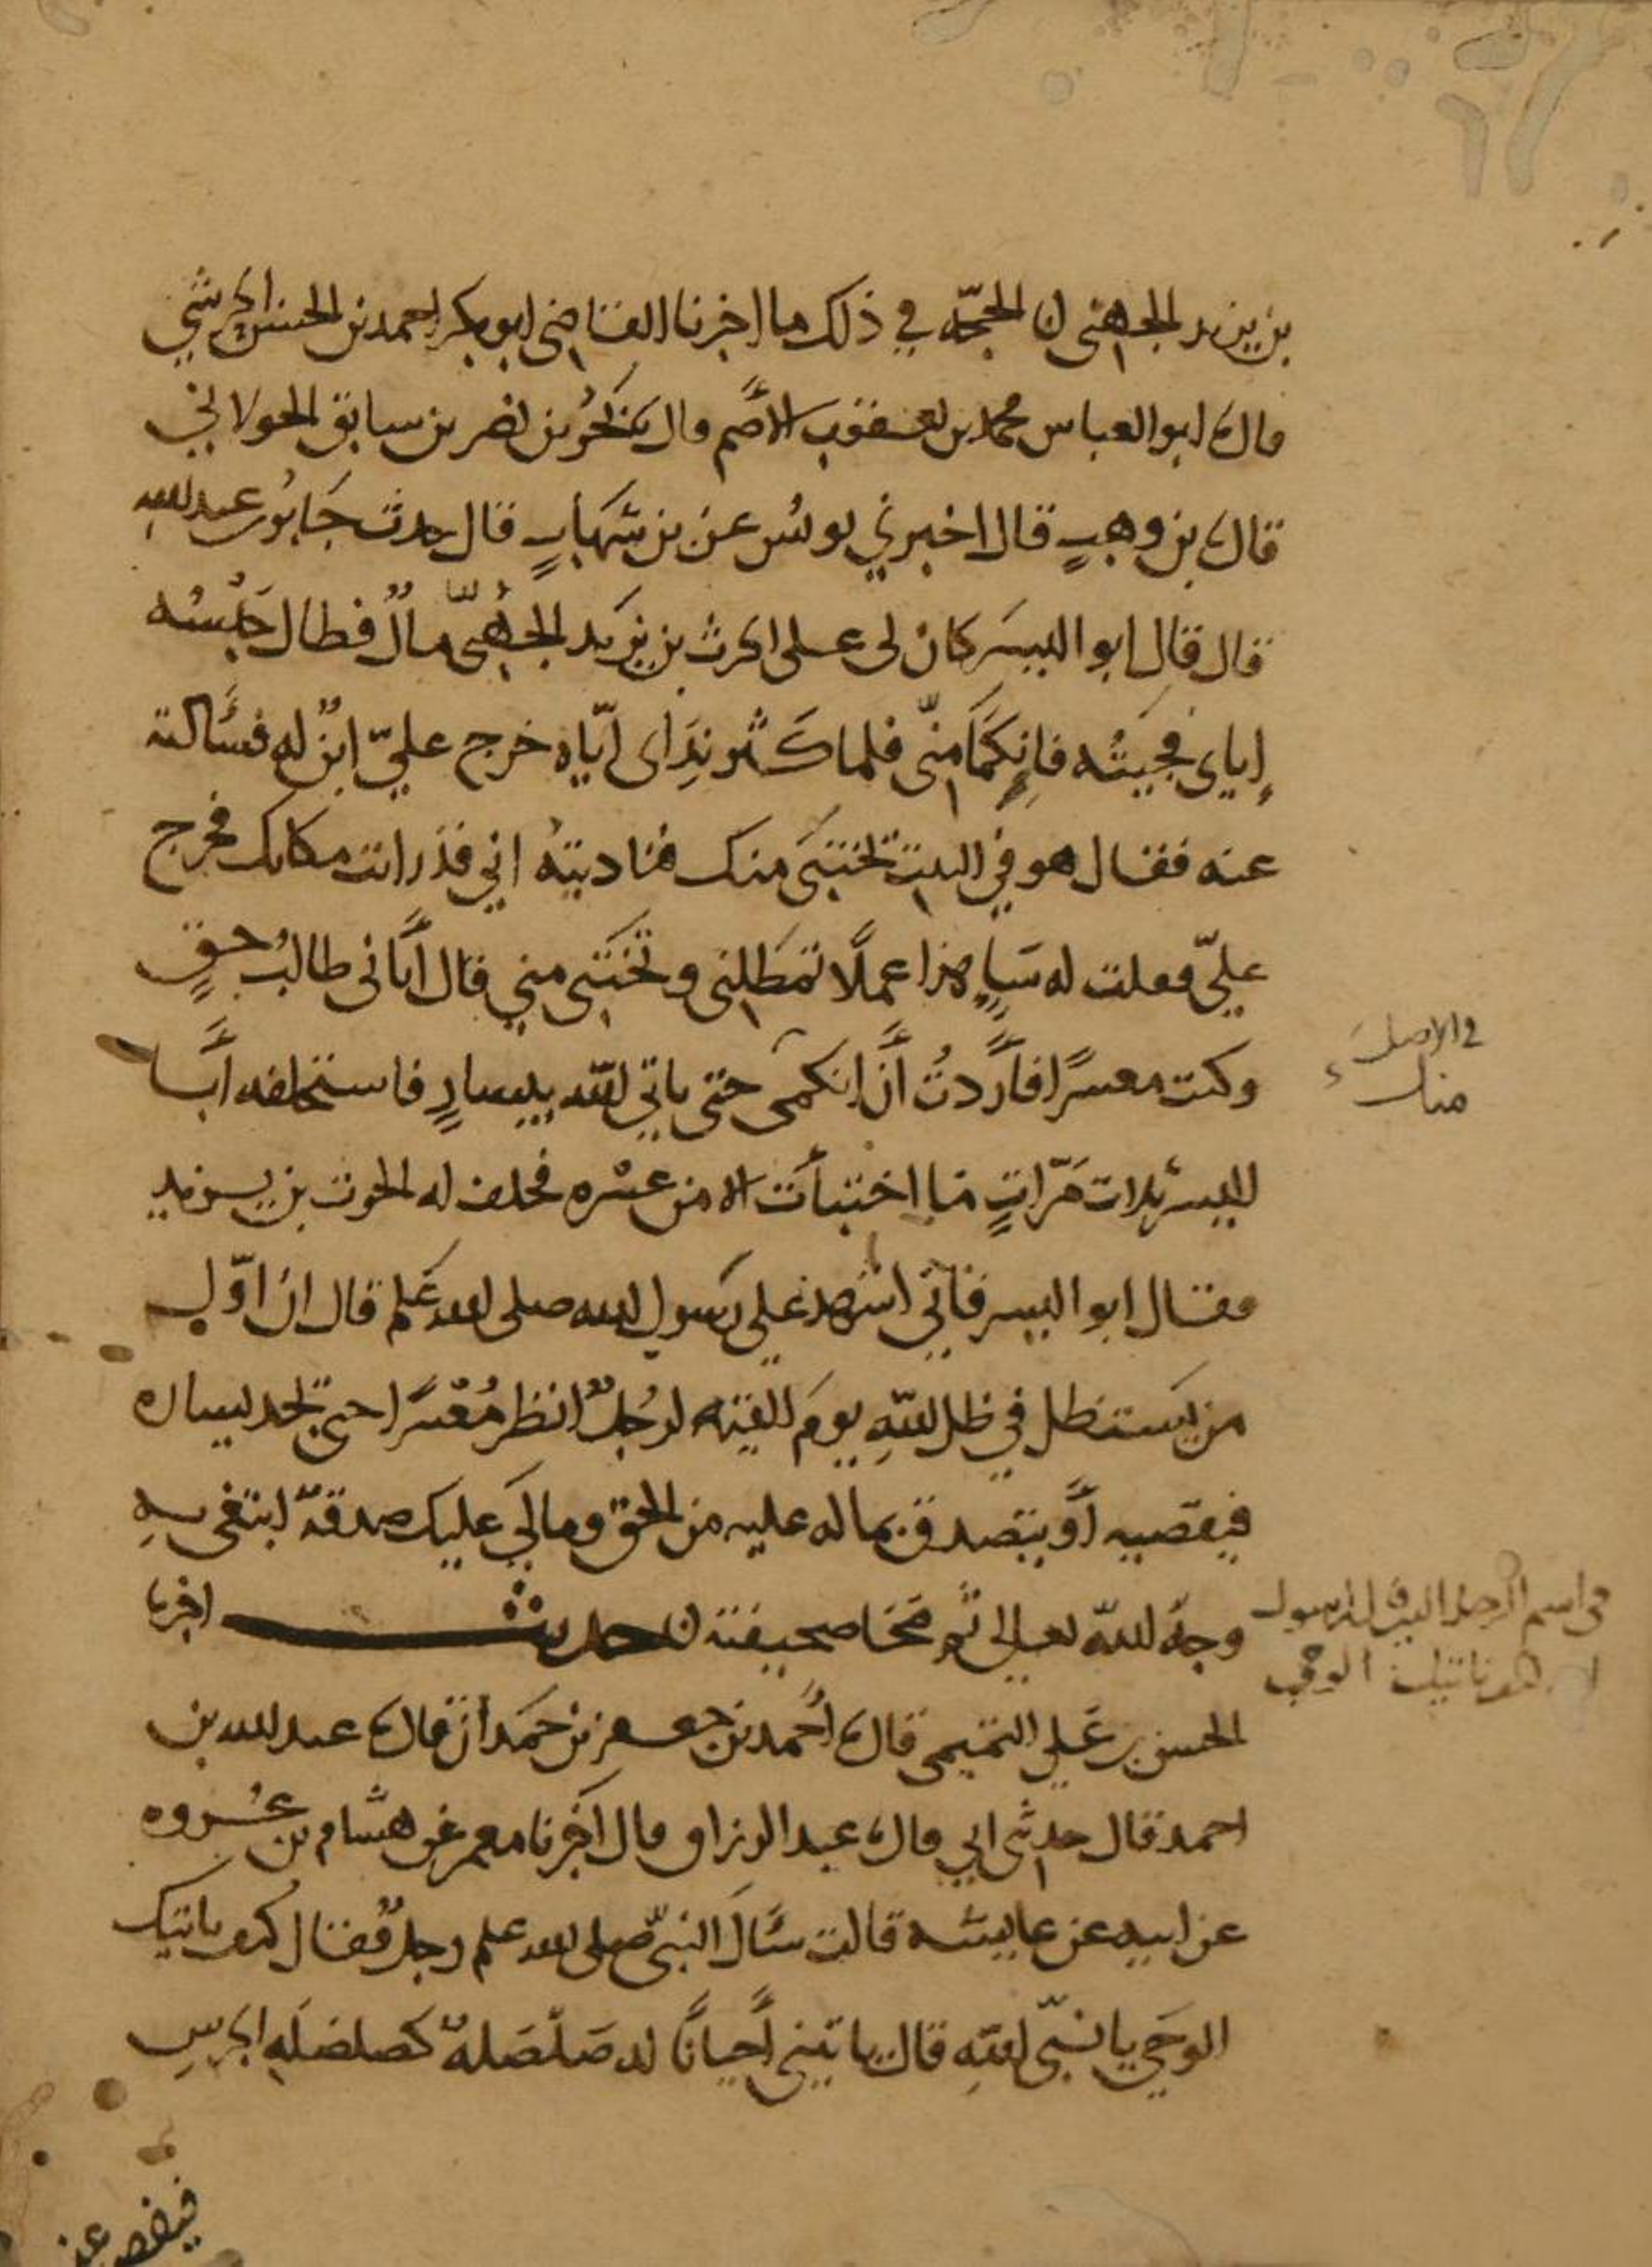 بن يزيد الجهني الحجة في ذلك ما اخبرنا القاضي ابو بكر احمد بن الحسن الحرشي
قال ابو العباس محمد بن يعقوب الأصم قال بحر بن نصر بن سابق الخولاني
قال بن وهبٍ قال اخبرني يونس عن بن شهابٍ قال حدث جابر عبد الله
قال قال ابو اليسر كان لي على الحرث بن يزيد الجهني مال فطال حبسه
إياي فجيته فانكما مني فلما كثر نداى اياه خرج عليّ ابن له فسألته
عنه فقال هو في البيت تختبى منك فناديته اني قد رايت مكانك فخرج
عليّ فعلت له هذا عملًا تمطلني وتختبى مني قال أتاني طالب حقٍ
وكنت معسرًا فأردتُ أن انكمى حتى ياتي الله بيسارٍ فاستحلفه أبا
في الاصل
منك
اليسر ثلاث مرّاتٍ ما اختبأت الا من عسره فحلف له الحرث بن يزيد
فقال ابو اليسر فاني اشهد على رسول الله صلى الله علم قال ان اوّل
من يستظل في ظل اللهِ يومَ القيمة لرجلٌ انظر مُعْسرًا حتى تجد يساره
فيقضيه أو يتصدق بما له عليه من الحق ومالي عليك صدقة ابتغى به
وجه الله تعالى ثم محا صحيفته حديث اخبرنا
في اسم الرجل الرسول
الوحي
الحسن بن علي التميمى قال أحمد بن جعفر بن حمدان قال عبد الله بن
احمد قال حدثني ابي قال عبد الرزاق قال اخبرنا معمر عن هشام بن عُروه
عن ابيه عن عايشه قالت سأل النبيّ صلى الله علم رجلٌ فقال كيف ياتيك
الوحي يا نبيّ اللهِ قال ياتيني أحيانًا له صَلْصَلةٌ كصلصلهِ الجرسِ
فيفصم عني